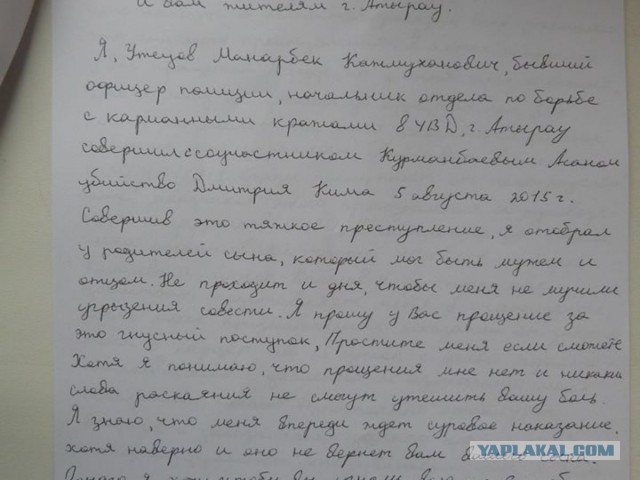 и вам жителям г. Атырау.
Я, Утецов Манарбек Катимуханович, бывший
офицер полиции, начальник отдела по борьбе
с карманными кражами в УВД, г. Атырау
совершил с соучастником Курманбаевым Асаном
убийство Дмитрия Кима 5 августа 2015 г.
Совершив это тяжкое преступление, я отобрал
у родителей сына, который мог быть мужем и
отцом. Не проходит и дня, чтобы меня не мучили
угрызения совести. Я прошу у Вас прощение за
это гнусный поступок, Простите меня если сможете
Хотя я понимаю, что прощения мне нет и никакие
слова раскаяния не смогут утешить вашу боль.
Я знаю, что меня впереди ждет суровое наказание,
хотя наверно и оно не вернет вам сына.
YAPLAKAL.COM